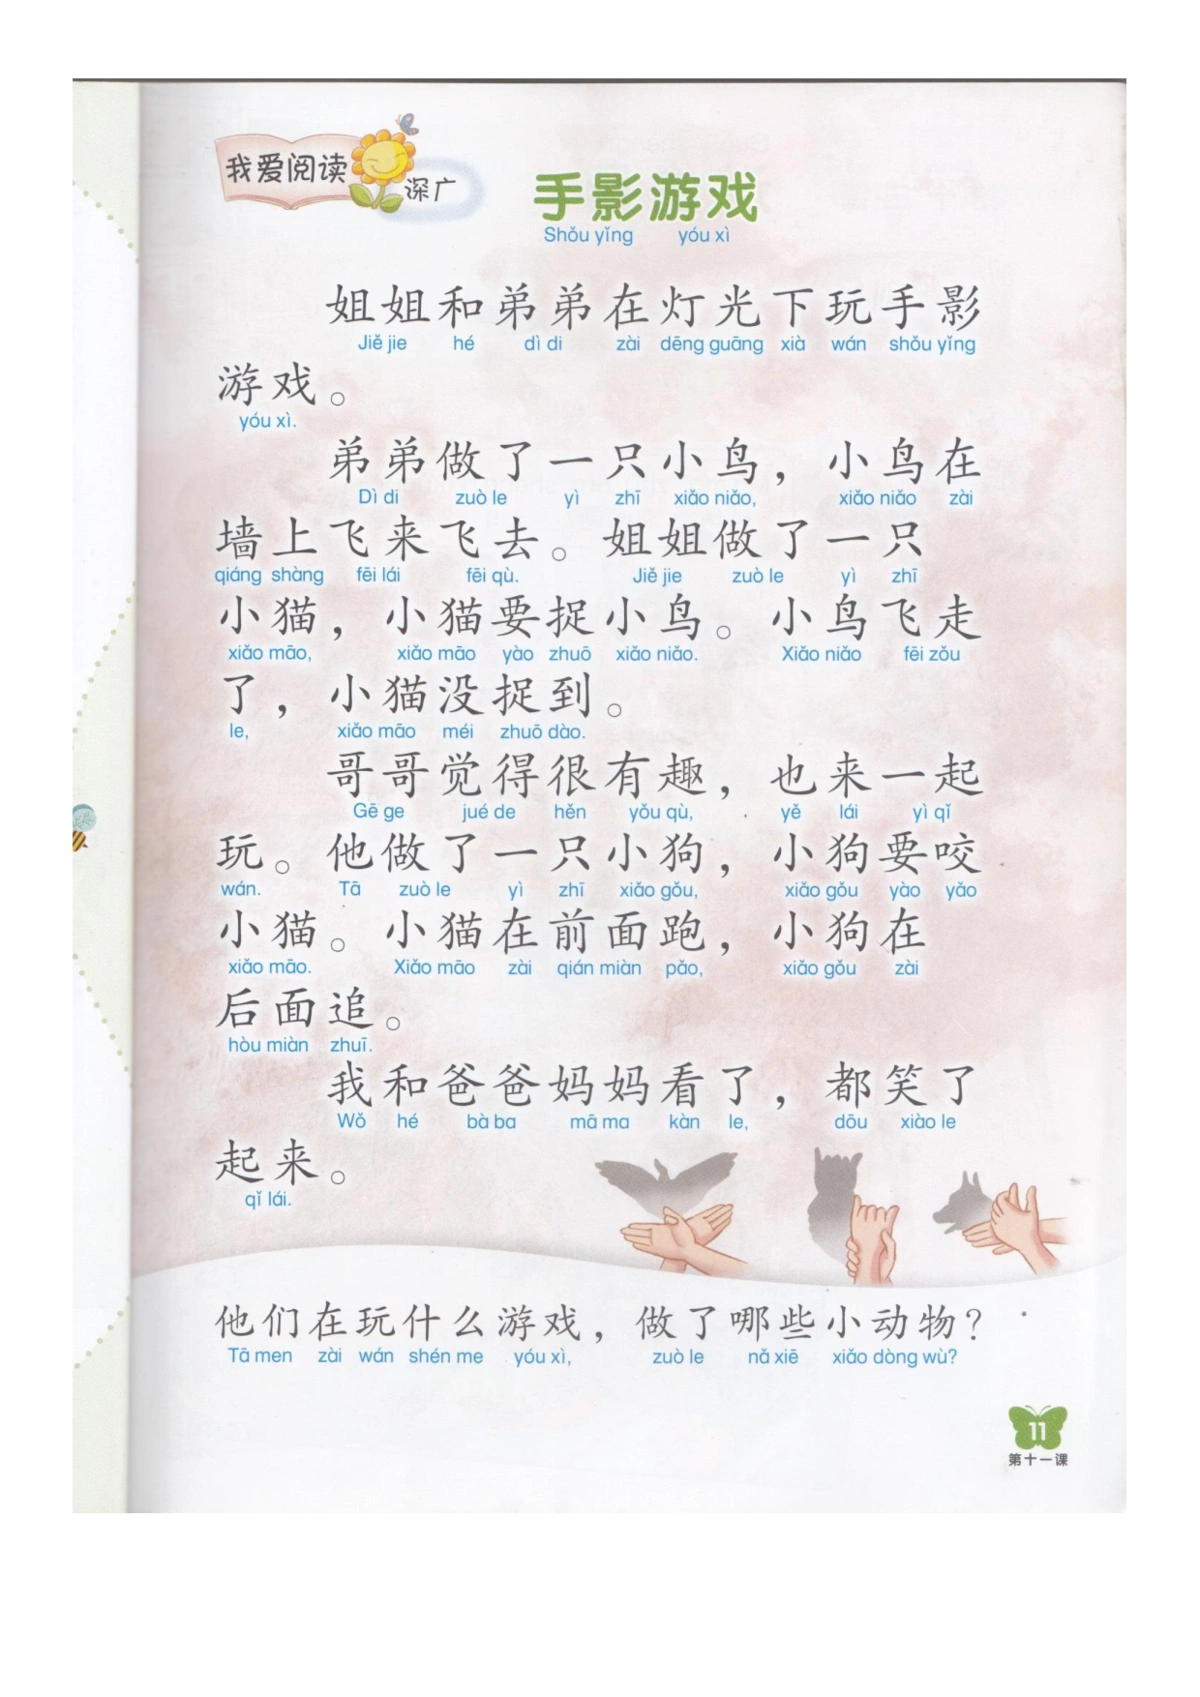 我爱阅读
深广
手影游戏
Shǒu yǐng yóu xì
姐姐和弟弟在灯光下玩手影
Jiě jie hé dì di zài dēng guāng xià wán shǒu yǐng
游戏。
yóu xì.
弟弟做了一只小鸟，小鸟在
Dì di zuò le yì zhī xiǎo niǎo, xiǎo niǎo zài
墙上飞来飞去。姐姐做了一只
qiáng shàng fēi lái fēi qù. Jiě jie zuò le yì zhī
小猫，小猫要捉小鸟。小鸟飞走
xiǎo māo, xiǎo māo yào zhuō xiǎo niǎo. Xiǎo niǎo fēi zǒu
了，小猫没捉到。
le, xiǎo māo méi zhuō dào.
哥哥觉得很有趣，也来一起
Gē ge jué de hěn yǒu qù, yě lái yì qǐ
玩。他做了一只小狗，小狗要咬
wán. Tā zuò le yì zhī xiǎo gǒu, xiǎo gǒu yào yǎo
小猫。小猫在前面跑，小狗在
xiǎo māo. Xiǎo māo zài qián miàn pǎo, xiǎo gǒu zài
后面追。
hòu miàn zhuī.
我和爸爸妈妈看了，都笑了
Wǒ hé bà ba mā ma kàn le, dōu xiào le
起来。
qǐ lái.
他们在玩什么游戏，做了哪些小动物？
Tā men zài wán shén me yóu xì, zuò le nǎ xiē xiǎo dòng wù?
11
第十一课